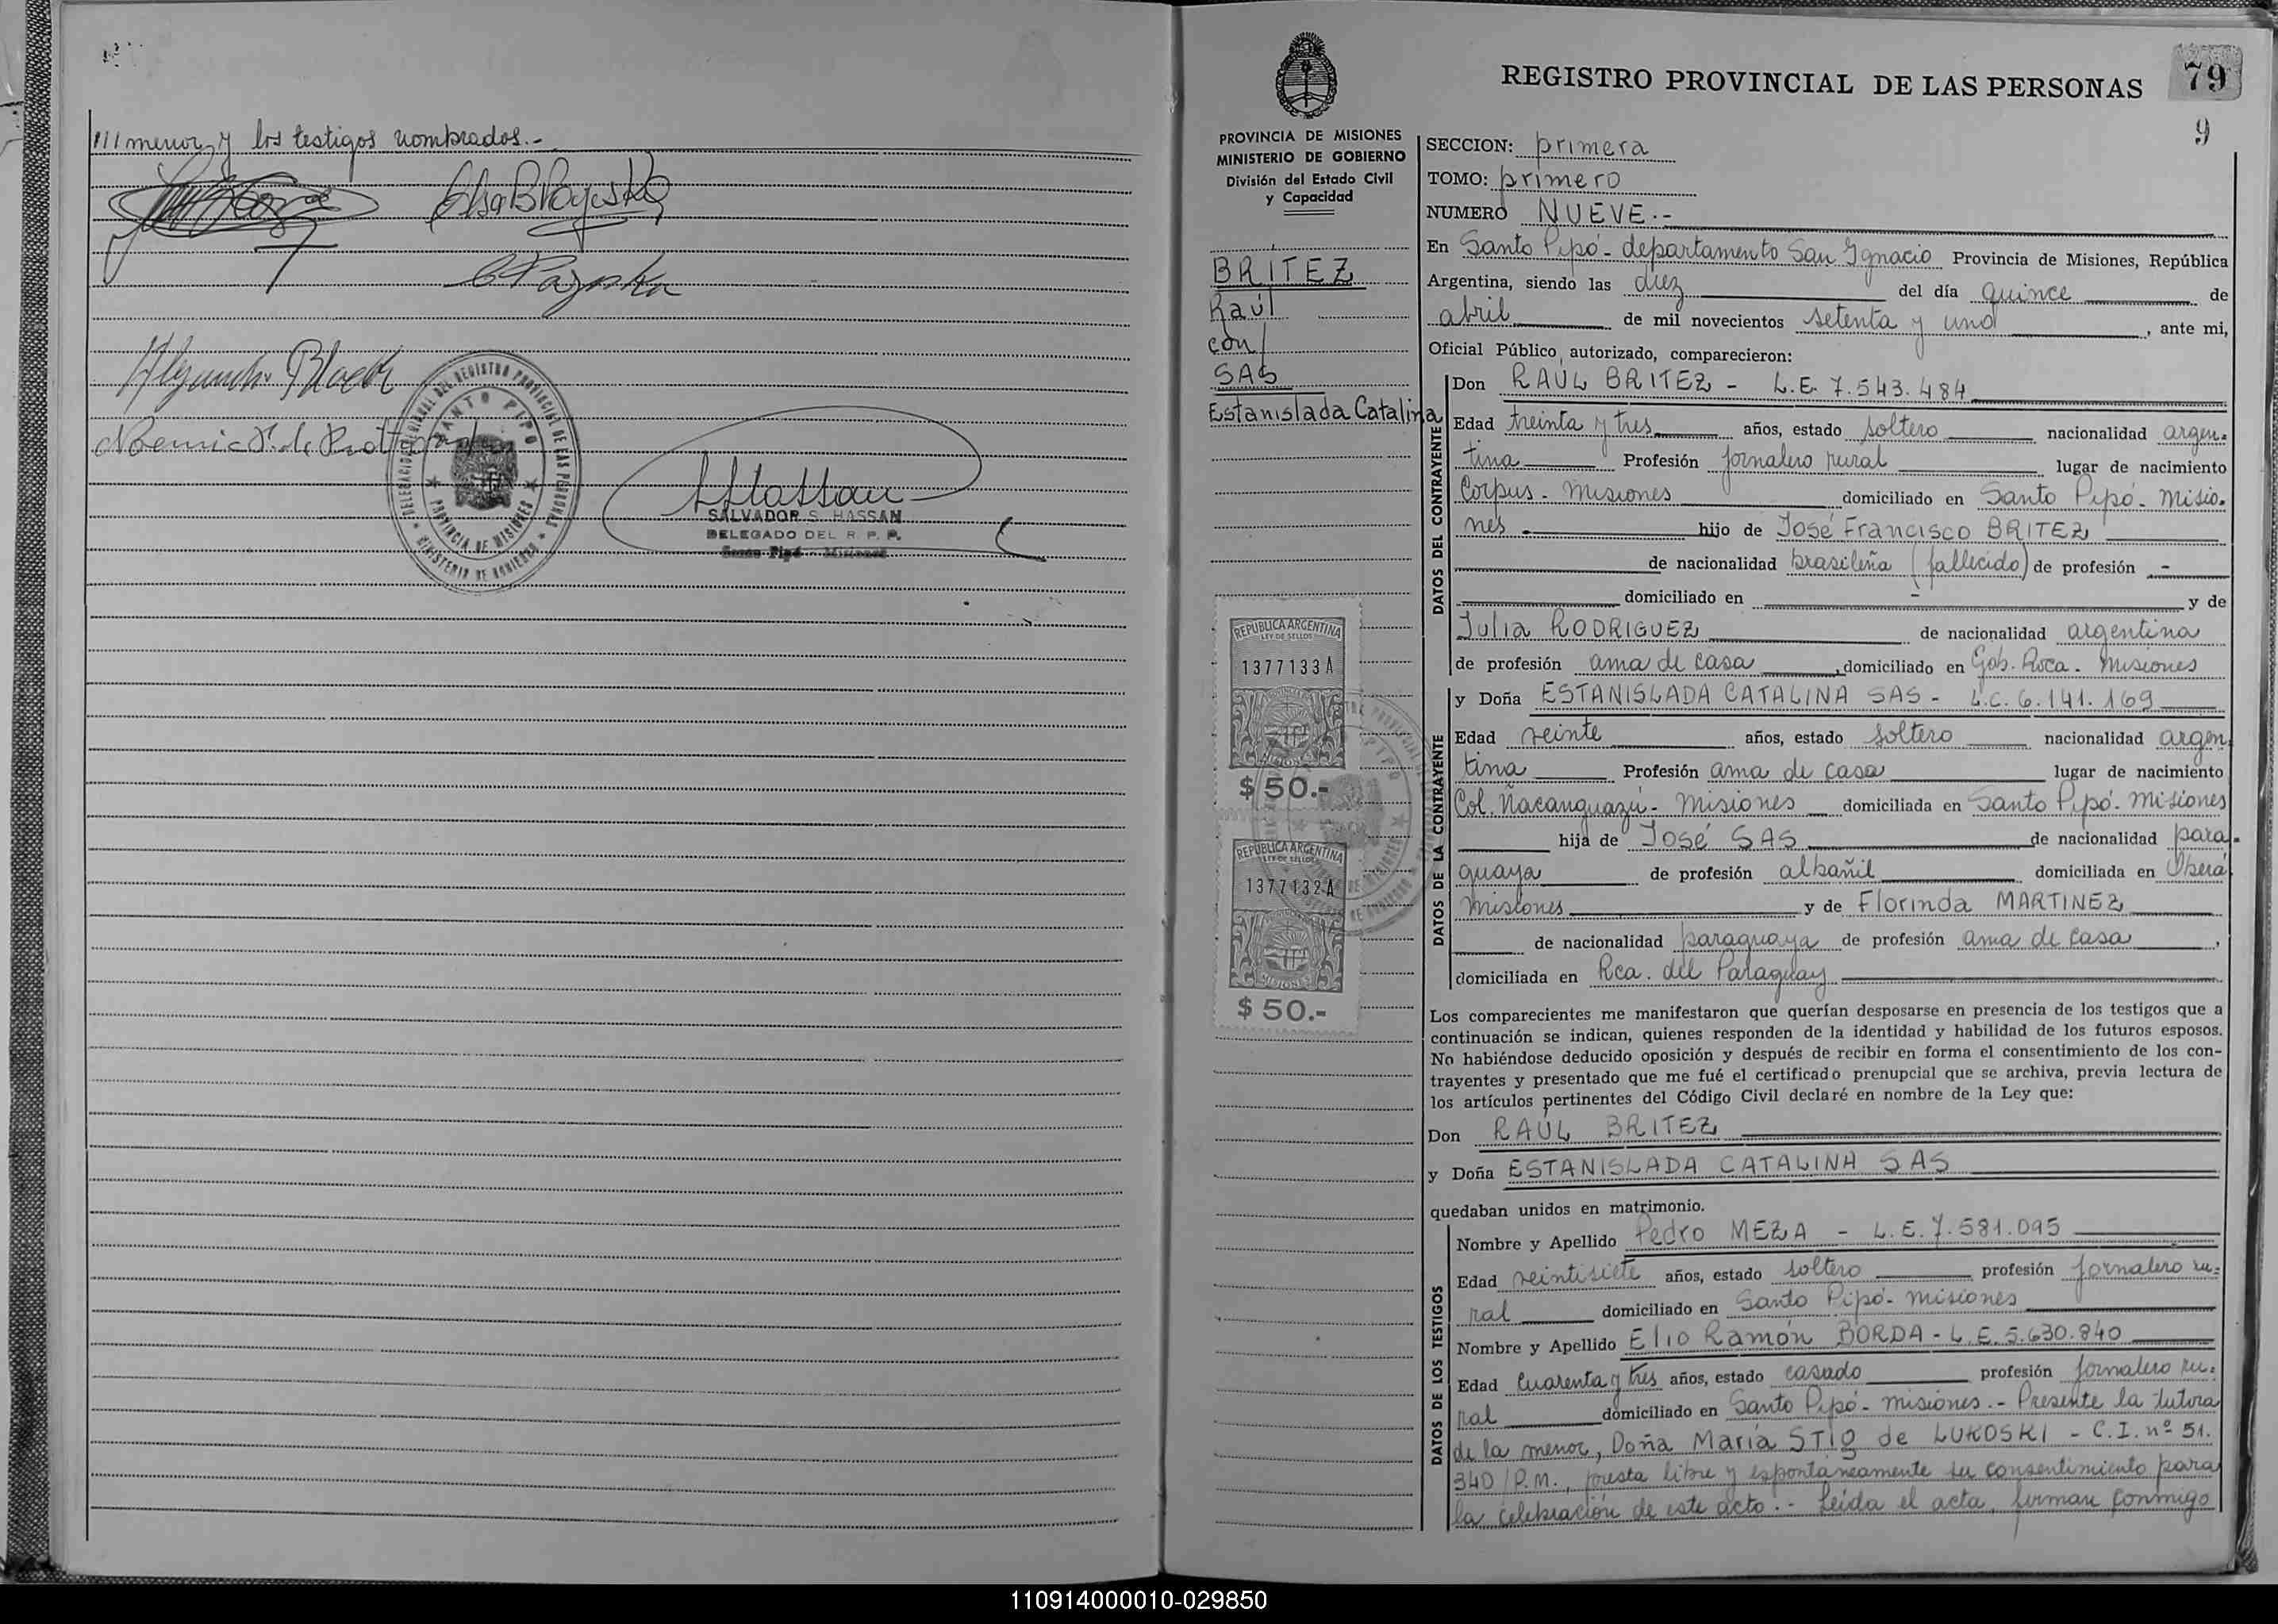 /// menor, y los testigos nombrados.-
DELEGACION DEL REGISTRO PROVINCIAL DE LAS PERSONAS
SANTO PIPO
PROVINCIA DE MISIONES
MINISTERIO DE GOBIERNO
SALVADOR S. HASSAN
DELEGADO DEL R. P. P.
Santo Pipó - Misiones
REGISTRO PROVINCIAL DE LAS PERSONAS
79
9
PROVINCIA DE MISIONES
MINISTERIO DE GOBIERNO
División del Estado Civil
y Capacidad
BRITEZ
Raúl
con
SAS
Estanislada Catalina
REPUBLICA ARGENTINA
LEY DE SELLOS
1377133 A
MISIONES
$ 50.-
REPUBLICA ARGENTINA
LEY DE SELLOS
1377132 A
MISIONES
$ 50.-
SECCION: primera
TOMO: primero
NUMERO NUEVE.-
En Santo Pipó - departamento San Ignacio Provincia de Misiones, República
Argentina, siendo las diez del día quince de
abril de mil novecientos setenta y uno, ante mi,
Oficial Público autorizado, comparecieron:
DATOS DEL CONTRAYENTE
Don RAÚL BRITEZ - L.E. 7.543.484
Edad treinta y tres años, estado soltero nacionalidad argen-
tina Profesión jornalero rural lugar de nacimiento
Corpus - Misiones domiciliado en Santo Pipó - Misio-
nes hijo de José Francisco BRITEZ
de nacionalidad brasileña (fallecido) de profesión -
domiciliado en - y de
Julia RODRIGUEZ de nacionalidad argentina
de profesión ama de casa, domiciliado en Gob. Roca - Misiones
DATOS DE LA CONTRAYENTE
y Doña ESTANISLADA CATALINA SAS - L.C. 6.141.169
Edad veinte años, estado soltero nacionalidad argen
tina Profesión ama de casa lugar de nacimiento
Col. Ñacanguazú - Misiones domiciliada en Santo Pipó - Misiones
hija de José SAS de nacionalidad para-
guaya de profesión albañil domiciliada en Oberá
Misiones y de Florinda MARTINEZ
de nacionalidad paraguaya de profesión ama de casa,
domiciliada en Rca. del Paraguay
Los comparecientes me manifestaron que querían desposarse en presencia de los testigos que a
continuación se indican, quienes responden de la identidad y habilidad de los futuros esposos.
No habiéndose deducido oposición y después de recibir en forma el consentimiento de los con-
trayentes y presentado que me fué el certificado prenupcial que se archiva, previa lectura de
los artículos pertinentes del Código Civil declaré en nombre de la Ley que:
Don RAÚL BRITEZ
y Doña ESTANISLADA CATALINA SAS
quedaban unidos en matrimonio.
DATOS DE LOS TESTIGOS
Nombre y Apellido Pedro MEZA - L.E. 7.581.095
Edad veintisiete años, estado soltero profesión jornalero ru-
ral domiciliado en Santo Pipó - Misiones
Nombre y Apellido Elio Ramón BORDA - L.E. 5.630.840
Edad cuarenta y tres años, estado casado profesión jornalero ru-
ral domiciliado en Santo Pipó - Misiones.- Presente la tutora
de la menor, Doña María STIG de LUKOSKI - C.I. nº 51.
340/P.M., presta libre y espontaneamente su consentimiento para
la celebración de este acto.- Leída el acta, firman conmigo
110914000010-029850